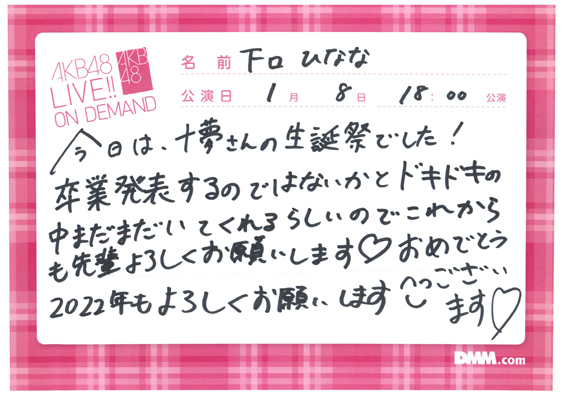 AKB48
LIVE!!
ON DEMAND
AKB
48
名前 下口ひなな
公演日 1月 8日 18:00 公演
今日は、十夢さんの生誕祭でした!
卒業発表するのではないかとドキドキの
中まだまだいてくれるらしいのでこれから
も先輩よろしくお願いします♡おめでとう
ございます♡
2022年もよろしくお願いします
DMM.com